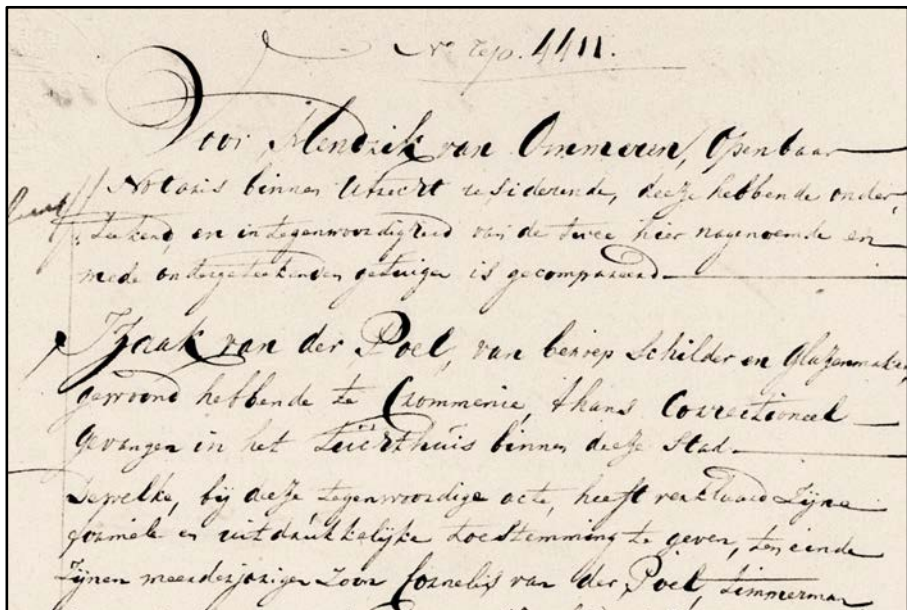 No. Rep. 4411.
Voor Hendrik van Ommeren, Openbaar
Notaris binnen Utrecht resideerende, deeze hebbende onder-
teekend, en in tegenwoordigheid van de twee hier nagenoemde en
mede ondergeteekenden getuigen is gecompareerd
Izaak van der Poel, van beroep Schilder en Glazenmaker,
gewoond hebbende te Crommenie, thans Correctioneel
gevangen in het Tuchthuis binnen deeze Stad.
Dewelke, bij deeze tegenwoordige acte, heeft verklaard Zijne
formele en uitdrukkelijke toestemming te geven, ten einde
Zijnen meerderjarigen Zoon Cornelis van der Poel, timmerman